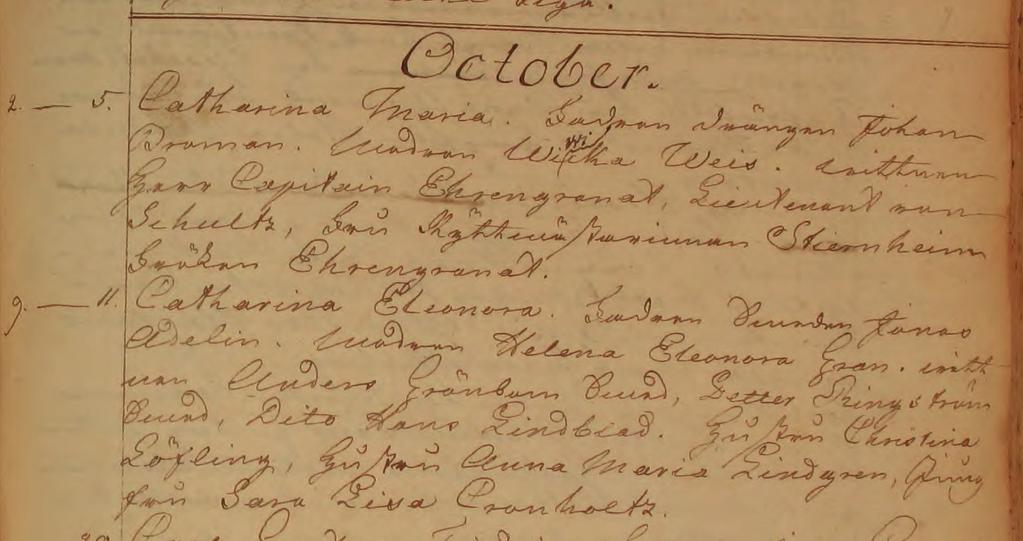 October.
2. — 5. Catharina Maria. Fadren drängen Johan
Broman. Modren Witka Weis. wittnen
wi
Herr Capitain Ehrengranat, Lieutenant von
Schultz, Fru Ryttmästarinnan Stiernheim
Fröken Ehrengranat.
9. — 11. Catharina Eleonora. Fadren Smeden Jonas
Adelin. Modren Helena Eleonora Gran. witt
nen Anders Grönbom Smed, Petter Ringström
Smed, Dito Hans Lindblad. Hustru Christina
Löfling, Hustru Anna Maria Lindgren, Jung
fru Sara Lisa Cronholtz.